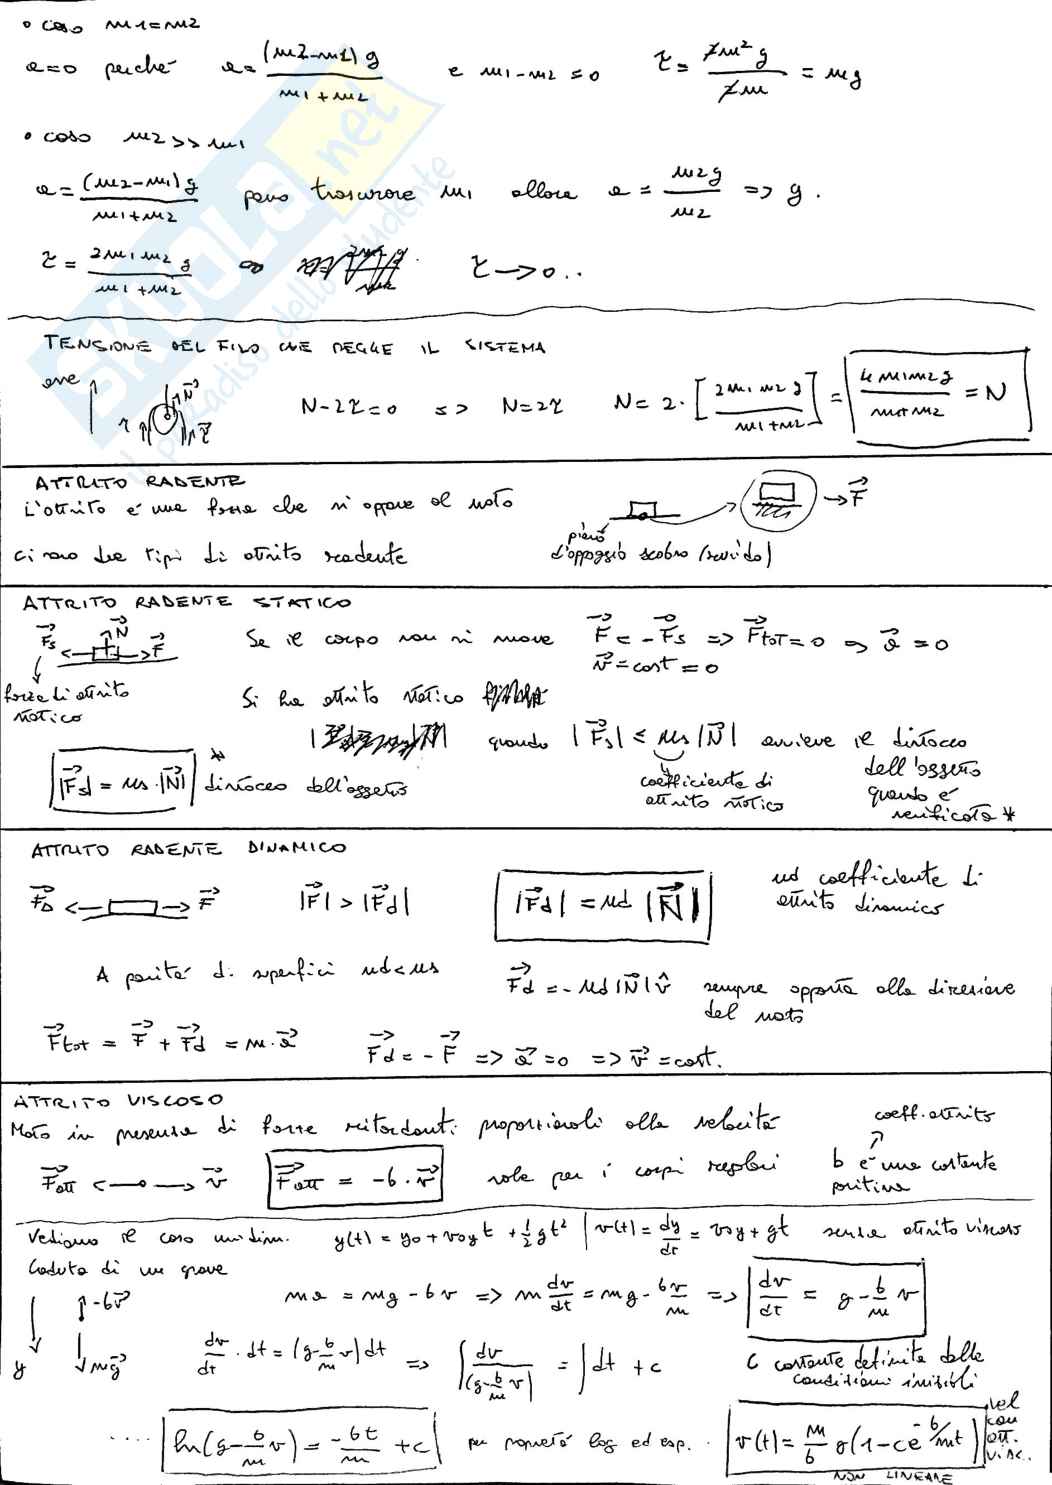 • caso m1=m2
a=0 perché a= (m2-m1) g / m1+m2 e m1-m2=0 τ= 2m² g / 2m = mg
• caso m2>>m1
a= (m2-m1) g / m1+m2 posso trascurare m1 allora a = m2g / m2 => g.
τ= 2m1m2 g / m1+m2 τ->0..
TENSIONE DEL FILO CHE REGGE IL SISTEMA
N-2τ=0 <=> N=2τ N= 2·[2m1m2g / m1+m2] = 4m1m2g / m1+m2 = N
N
τ τ
ATTRITO RADENTE
L'attrito é una forza che si oppone al moto
F
piano
d'appoggio scabro (ruvido)
ci sono due tipi di attrito radente
ATTRITO RADENTE STATICO
Fs N F
Se il corpo non si muove F = -Fs => Ftot=0 => a=0
v=cost=0
forza di attrito
statico
Si ha attrito statico
quando |Fs| ≤ μs|N| avviene il distacco
dell'oggetto
quando é
verificata *
coefficiente di
attrito statico
|Fs| = μs·|N| * distacco dell'oggetto
ATTRITO RADENTE DINAMICO
FD F |F|>|Fd| |Fd| = μd |N| μd coefficiente di
attrito dinamico
A parità di superfici μd<μs Fd = -μd|N|v̂ sempre opposta alla direzione
del moto
Ftot = F + Fd = m·a Fd = -F => a=0 => v=cost.
ATTRITO VISCOSO
Moto in presenza di forze ritardanti proporzionali alla velocità
coeff. attrito
Fatt v Fatt = -b·v vale per i corpi regolari b é una costante
positiva
Vediamo il caso unidim. y(t) = y0+v0y t + 1/2 gt² | v(t) = dy/dt = v0y+gt senza attrito viscoso
Caduta di un grave
-bv
y mg
ma = mg-bv => m dv/dt = mg - b v/m => dv/dt = g - b/m v
dv/dt · dt = (g-b/m v)dt => ∫ dv / (g-b/m v) = ∫dt + c C costante definita dalle
condizioni iniziali
.... ln(g-b/m v) = -bt/m + c per proprietà log ed esp. . v(t) = m/b g(1-ce^-b/mt) vel
con
att.
visc..
NON LINEARE
SKUOLA.net
il paradiso dello studente